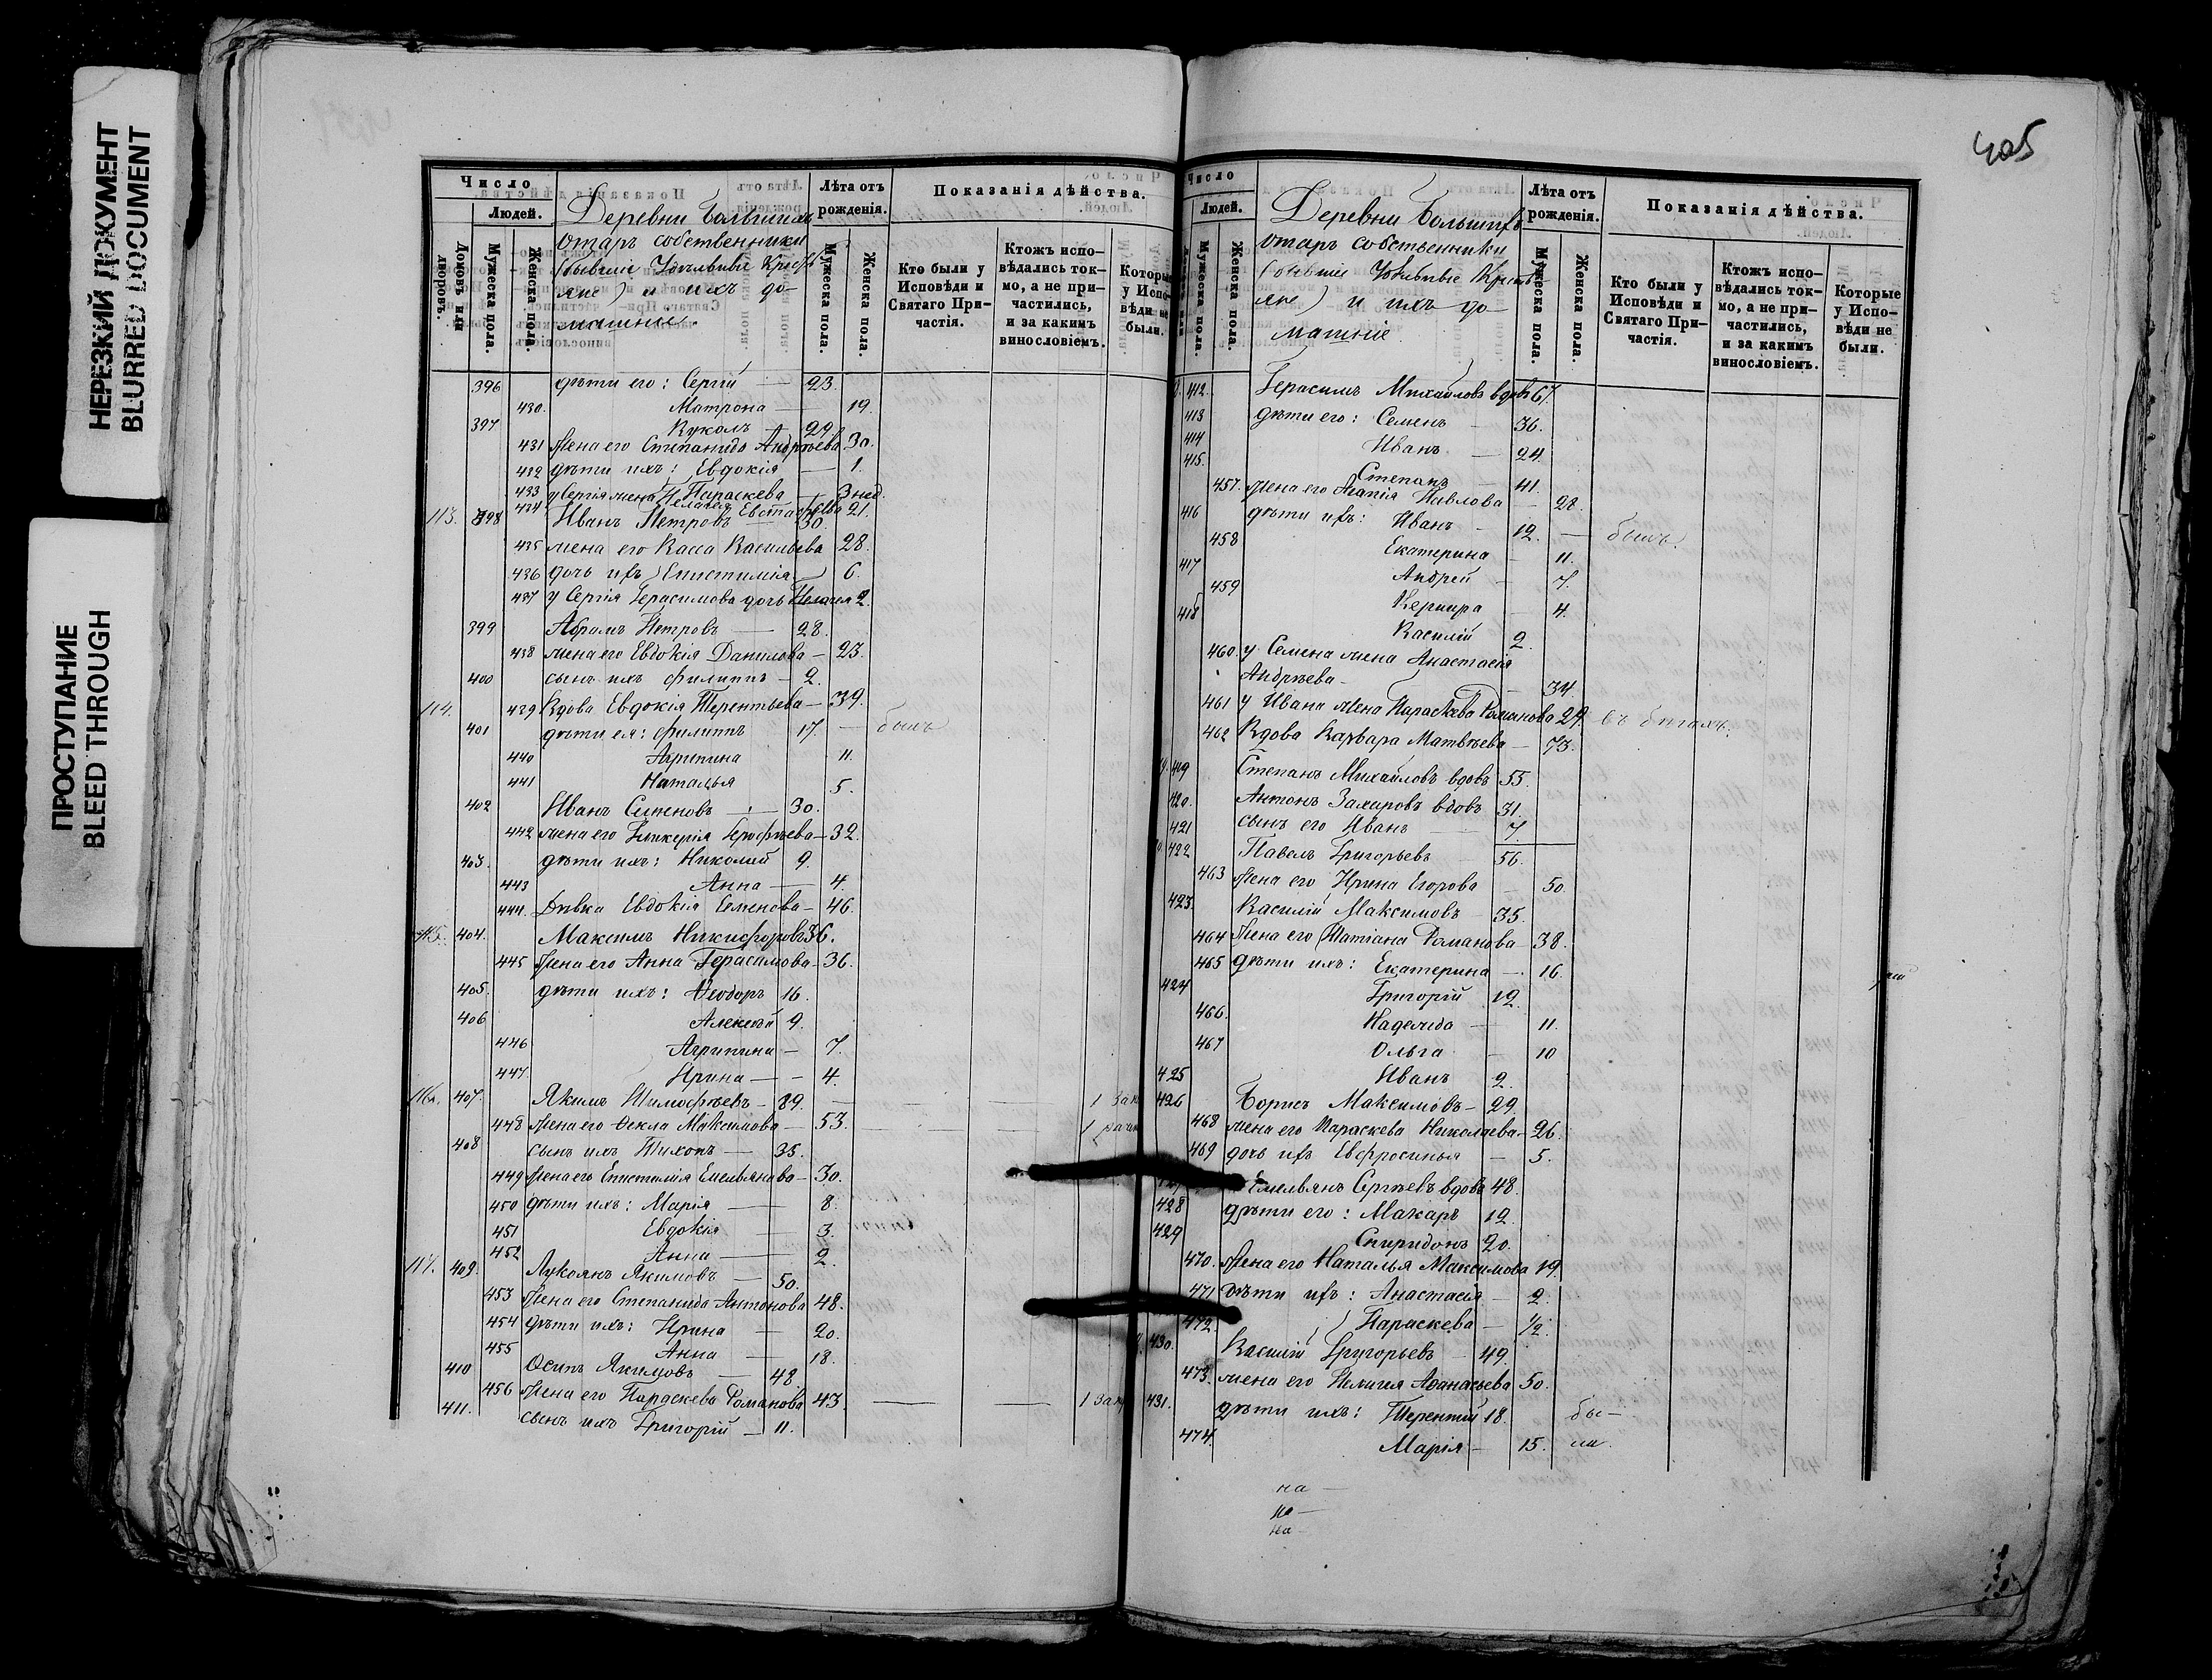 НЕРЕЗКИЙ ДОКУМЕНТ
BLURRED DOCUMENT
ПРОСТУПАНИЕ
BLEED THROUGH
405
Число
Людей.
Домовъ или дворовъ.
Мужеска пола.
Женска пола.
Деревни Большихъ
Отаръ собственники
(бывшіе Удѣльные Кресть-
яне) и ихъ до-
машніе.
Лѣта отъ рожденія.
Мужеска пола.
Женска пола.
Показанія дѣйства.
Кто были у Исповѣди и Святаго При-
частія.
Ктожъ испо-
вѣдались ток-
мо, а не при-
частились, и за какимъ винословіемъ.
Которые у Испо-
вѣди не были.
396 дѣти его: Сергій — 23.
430. Матрона — 19.
397 29
431 Жена его Степанида Андрѣева 30.
432 дѣти ихъ: Евдокія — 1.
433 Параскева — 3 нед.
434 у Сергія жена Пелагея Евстафіева 21.
113. 398 Иванъ Петровъ — 30.
435 жена его Васса Васильева 28.
436 дочь ихъ Епистимія 6.
437 у Сергія Герасимова дочь Пелагея 2.
399 Абрамъ Петровъ — 28.
438 жена его Евдокія Данилова — 23.
400 сынъ ихъ Филиппъ — 2.
114. 439 Вдова Евдокія Терентьева — 39.
401 дѣти ея: Филиппъ 17. — былъ
440 Агрипина 11.
441 Наталья 5.
402 Иванъ Семеновъ — 30.
442 жена его Гликерія Ерофѣева — 32.
403. дѣти ихъ: Николай 9.
443 Анна — 4.
444. Дѣвка Евдокія Семенова — 46.
115. 404. Максимъ Никифоровъ 36.
445 Жена его Анна Герасимова — 36.
405. дѣти ихъ: Ѳеодоръ 16.
406 Алексѣй 9.
446 Агрипина — 7.
447. Ирина — 4.
116. 407. Якимъ Тимофѣевъ — 89. — — 1
448 Жена его Ѳекла Максимова — 53. — — 1
408 сынъ ихъ Тихонъ — 35.
449 Жена его Епистимія Емельянова — 30.
450 дѣти ихъ: Марія — 8.
451 Евдокія 3.
452 Анна — 2.
117. 409. Лукоянъ Якимовъ — 50.
453 Жена его Степанида Антонова 48.
454 дѣти ихъ: Ирина — 20.
455 Анна — 18.
410 Осипъ Якимовъ — 48.
456 Жена его Параскева Романова 43. — — 1
411. сынъ ихъ Григорій — 11.
Число
Людей.
Мужеска пола.
Женска пола.
Деревни Большихъ
Отаръ собственники
(бывшіе Удѣльные Кресть-
яне) и ихъ до-
машніе.
Лѣта отъ рожденія.
Мужеска пола.
Женска пола.
Показанія дѣйства.
Кто были у Исповѣди и Святаго При-
частія.
Ктожъ испо-
вѣдались ток-
мо, а не при-
частились, и за какимъ винословіемъ.
Которые у Испо-
вѣди не были.
412. Герасимъ Михайловъ вдовъ 67.
413 дѣти его: Семенъ — 36.
414 Иванъ — 24.
415. Степанъ — 41.
457. жена его Агапія Павлова — 28.
416 дѣти ихъ: Иванъ — 12. — былъ.
458 Екатерина — 11.
417 Андрей — 7.
459 4.
418 Василій 2.
460. у Семена жена Анастасія
Андрѣева — 34.
461 у Ивана жена Параскева Романова 29.
462 Вдова Варвара Матвѣева — 73.
419 Степанъ Михайловъ вдовъ 55.
420. Антонъ Захаровъ вдовъ 31.
421 сынъ его Иванъ — 7.
422 Павелъ Григорьевъ 56.
463 Жена его Ирина Егорова — 50.
423. Василій Максимовъ — 35.
464 Жена его Татіана Романова — 38.
465 дѣти ихъ: Екатерина — 16.
424 Григорій 12.
466. Надежда — 11.
467 Ольга — 10
425 Иванъ 2.
426 Борисъ Максимовъ — 29.
468 жена его Параскева Николаева — 26.
469 дочь ихъ Евфросинья — 5.
Емельянъ Сергѣевъ вдовъ 48.
428 дѣти его: Макаръ 12.
429 Спиридонъ 20.
470. Жена его Наталья Максимова 19.
471 Дѣти ихъ: Анастасія — 2.
472. Параскева — 1/2.
430. Василій Григорьевъ — 49.
473. жена его Пелагея Аѳанасьева 50.
431. дѣти ихъ: Терентій 18. бы-
474. Марія — 15. ли.
на —
на —
на —